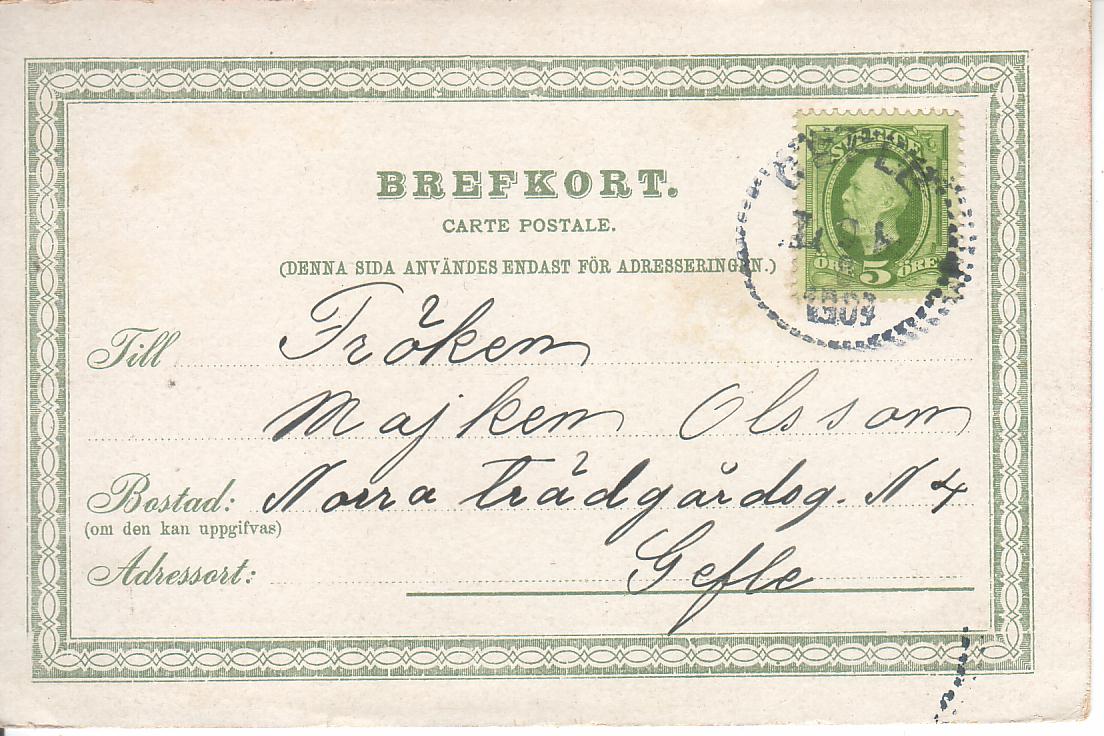 BREFKORT.
CARTE POSTALE.
(DENNA SIDA ANVÄNDES ENDAST FÖR ADRESSERINGEN.)
SVERIGE
ÖRE 5 ÖRE
Till Fröken
Majken Olsson
Bostad: Norra trädgårdsg. N 4
(om den kan uppgifvas)
Adressort: Gefle